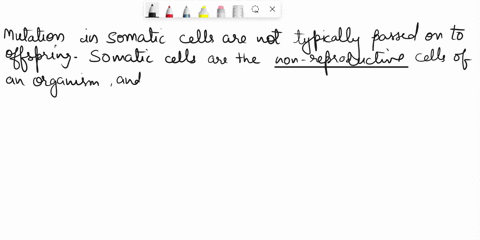 Mutation in somatic cells are not typically passed on to
offspring. Somatic cells are the non-reproductive cells of
an organism, and